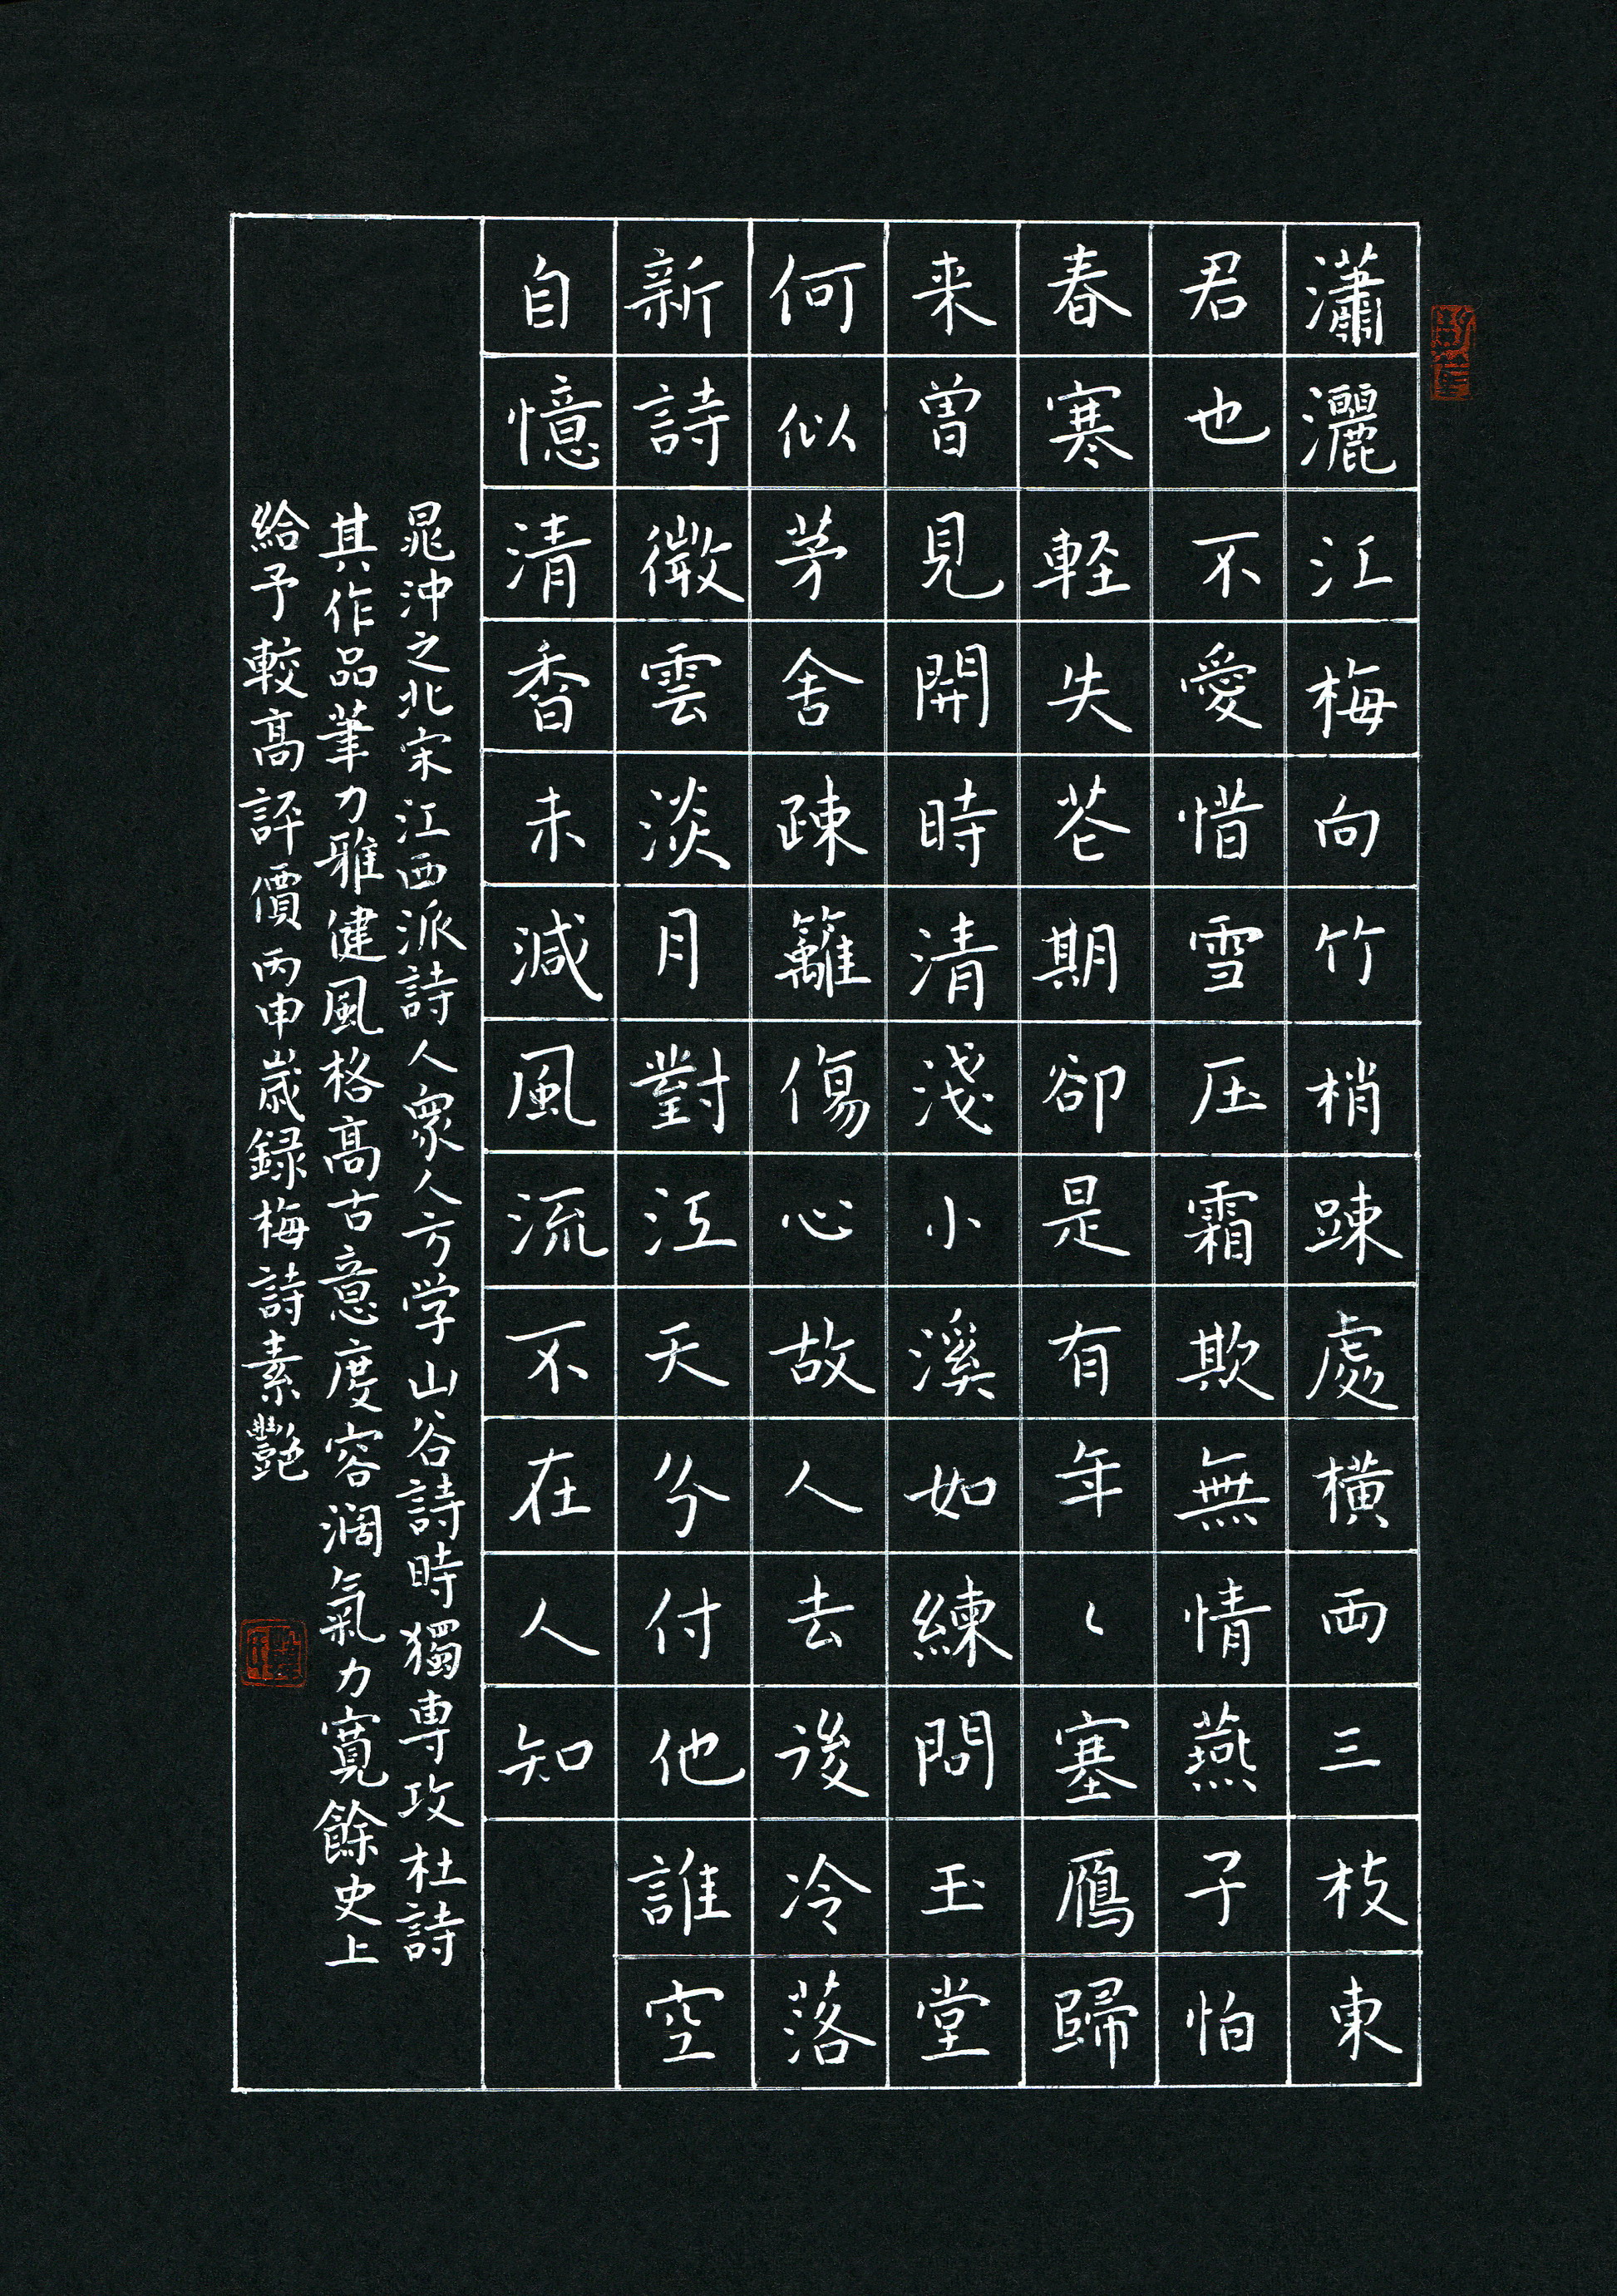 瀟灑江梅向竹梢踈處橫兩三枝東
君也不愛惜雪压霜欺無情燕子怕
春寒軽失芲期卻是有年〻塞鴈歸
来曽見開時清淺小溪如練問玉堂
何似茅舍疎籬傷心故人去後冷落
新詩微雲淡月對江天分付他誰空
自憶清香未減風流不在人知
晁沖之北宋江西派詩人眾人方学山谷詩時獨専攻杜詩
其作品筆力雅健風格高古意度容濶氣力寬餘史上
給予較高評價丙申歲録梅詩素艷